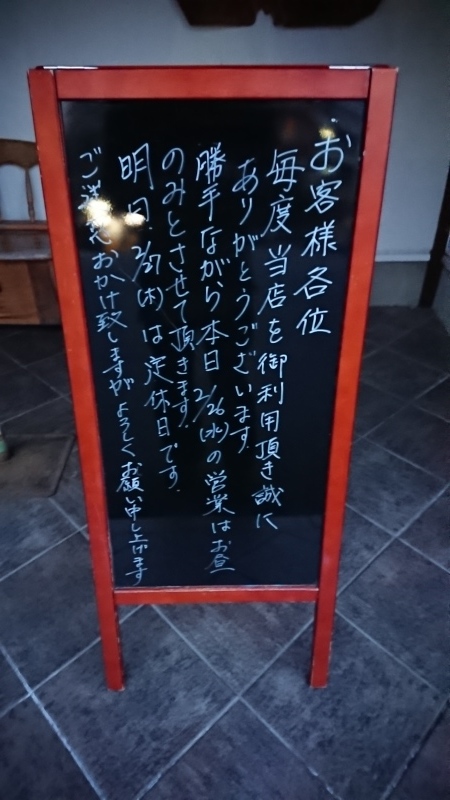 お客様各位
毎度当店を御利用頂き誠に
ありがとうございます.
勝手ながら本日2/26(水)の営業はお昼
のみとさせて頂きます.
明日.2/27(木)は定休日です.
ご迷惑おかけ致しますがよろしくお願い申し上げます